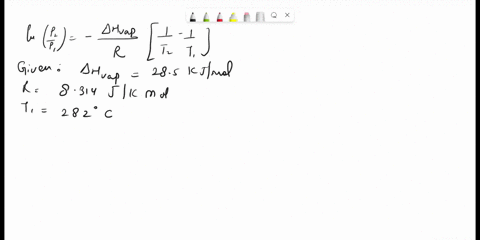 ln (P2/P1) = - ΔHvap/R [1/T2 - 1/T1]
Given: ΔHvap = 28.5 KJ/mol
R = 8.314 J/K mol
T1 = 282° C